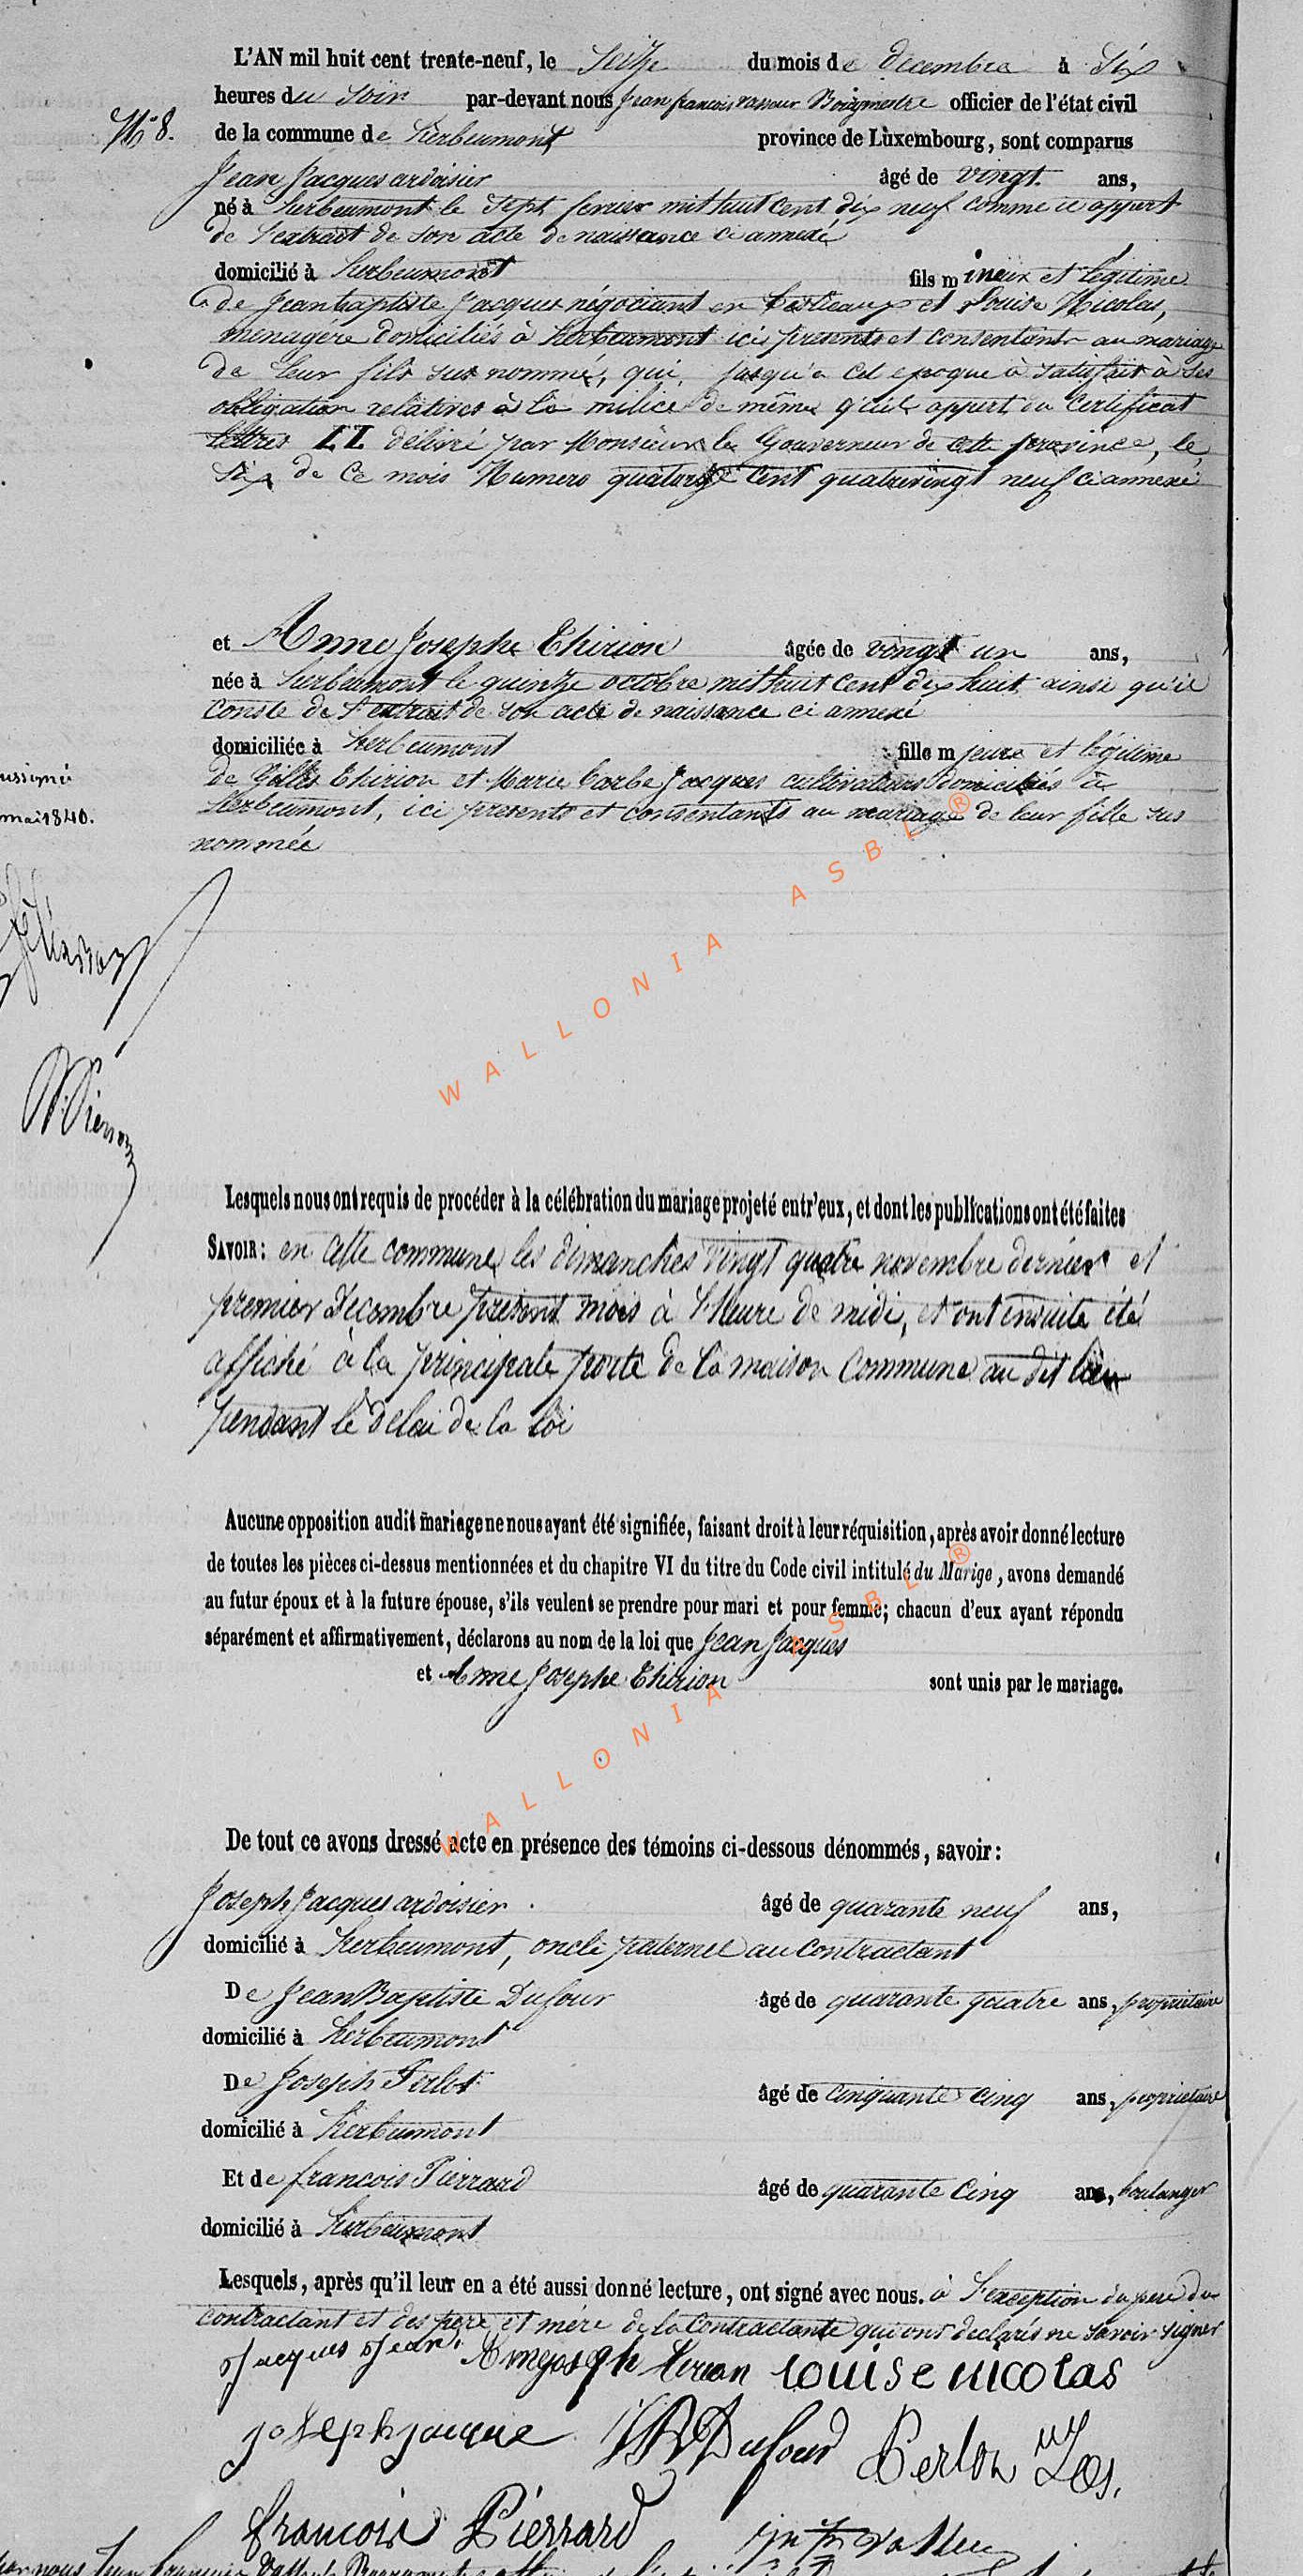 L'AN mil huit cent trente-neuf, le Seize du mois de decembre à Six
heures du soir par-devant nous Jean francois vasseur Bourgmestre officier de l'état civil
N° 8. de la commune de herbeumont province de Luxembourg, sont comparus
Jean Jacques ardoisier âgé de vingt ans,
né à herbeumont le Sept fevrier mil huit cent dix neuf comme il appert
de l'extrait de son acte de naissance ci annexé
domicilié à herbeumont fils mineur et légitime
de Jean baptiste Jacques négociant en bestiaux et Louise Nicolas,
menagère domiciliés à herbeumont ici présents et consentants au mariage
de leur fils sus nommé, qui, jusqu'a cet epoque à satisfait à ses
obligation relatives à la milice de même qu'il appert du Certificat
lettres LL délivré par Monsieur le Gouverneur de cette province, le
Six de ce mois Numero quatorze cent quatrevingt neuf ci annexé
et Anne Josephe Thirion âgée de vingt un ans,
née à herbeumont le quinze octobre mil huit cent dix huit ainsi qu'il
conste de l'extrait de son acte de naissance ci annexé
domiciliée à herbeumont fille mjeure et légitime
de Gilles Thirion et Marie barbe Jacques cultivateurs domiciliés à
herbeumont, ici présents et consentants au mariage de leur fille sus
nommée
ussigné
mai 1840.
WALLONIA ASBL ®
Lesquels nous ont requis de procéder à la célébration du mariage projeté entr'eux, et dont les publications ont été faites
SAVOIR : en cette commune les dimanches vingt quatre novembre dernier et
premier décembre présent mois à l'heure de midi, et ont ensuite été
affiché à la principale porte de la maison Commune au dit lieu
pendant le delai de la loi
Aucune opposition audit mariage ne nous ayant été signifiée, faisant droit à leur réquisition, après avoir donné lecture
de toutes les pièces ci-dessus mentionnées et du chapitre VI du titre du Code civil intitulé du Marige, avons demandé
au futur époux et à la future épouse, s'ils veulent se prendre pour mari et pour femme; chacun d'eux ayant répondu
séparément et affirmativement, déclarons au nom de la loi que Jean Jacques
et Anne Josephe Thirion sont unis par le mariage.
WALLONIA ASBL ®
De tout ce avons dressé acte en présence des témoins ci-dessous dénommés, savoir :
Joseph Jacques ardoisier âgé de quarante neuf ans,
domicilié à herbeumont, oncle paternel au contractant
De Jean Baptiste Dufour âgé de quarante quatre ans, propriétaire
domicilié à herbeumont
De Joseph Perlot âgé de cinquante cinq ans, propriétaire
domicilié à herbeumont
Et de francois Pierrard âgé de quarante cinq ans, boulanger
domicilié à herbeumont
Lesquels, après qu'il leur en a été aussi donné lecture, ont signé avec nous. à l'exception du pere du
contractant et des pere et mère de la Contractante qui ont declarés ne savoir signer
Jacques Jean. Louise nicolas
joseph jacque JB Dufour
francois Pierrard